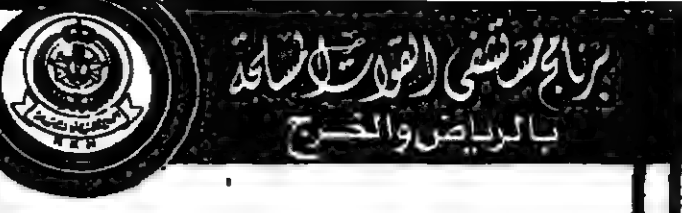 برنامج مستشفى القوات المسلحة
بالرياض والخرج